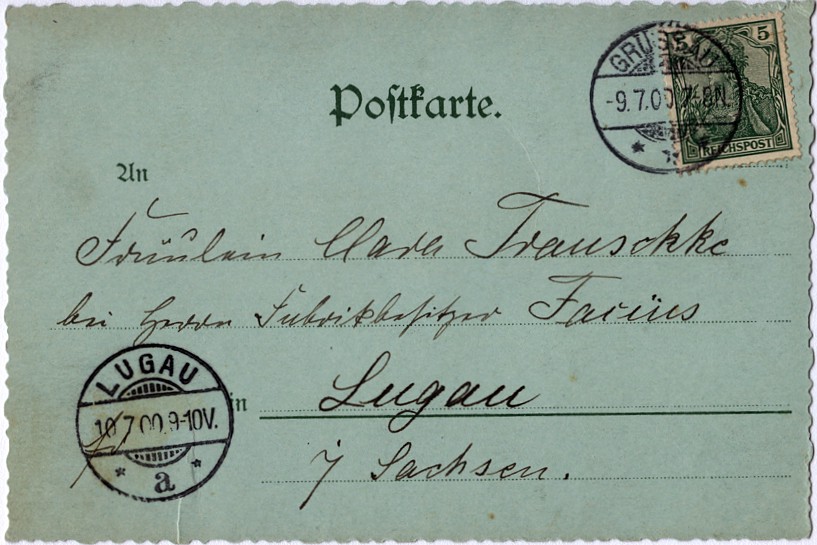 Postkarte.
GRÜSSAU
-9.7.00.7-8N.
5
REICHSPOST
An
Fräulein Clara Trauschke
bei Herrn Fabrikbesitzer Facius
in Lugau
i/ Sachsen.
LUGAU
10.7.00.9-10V.
* a *